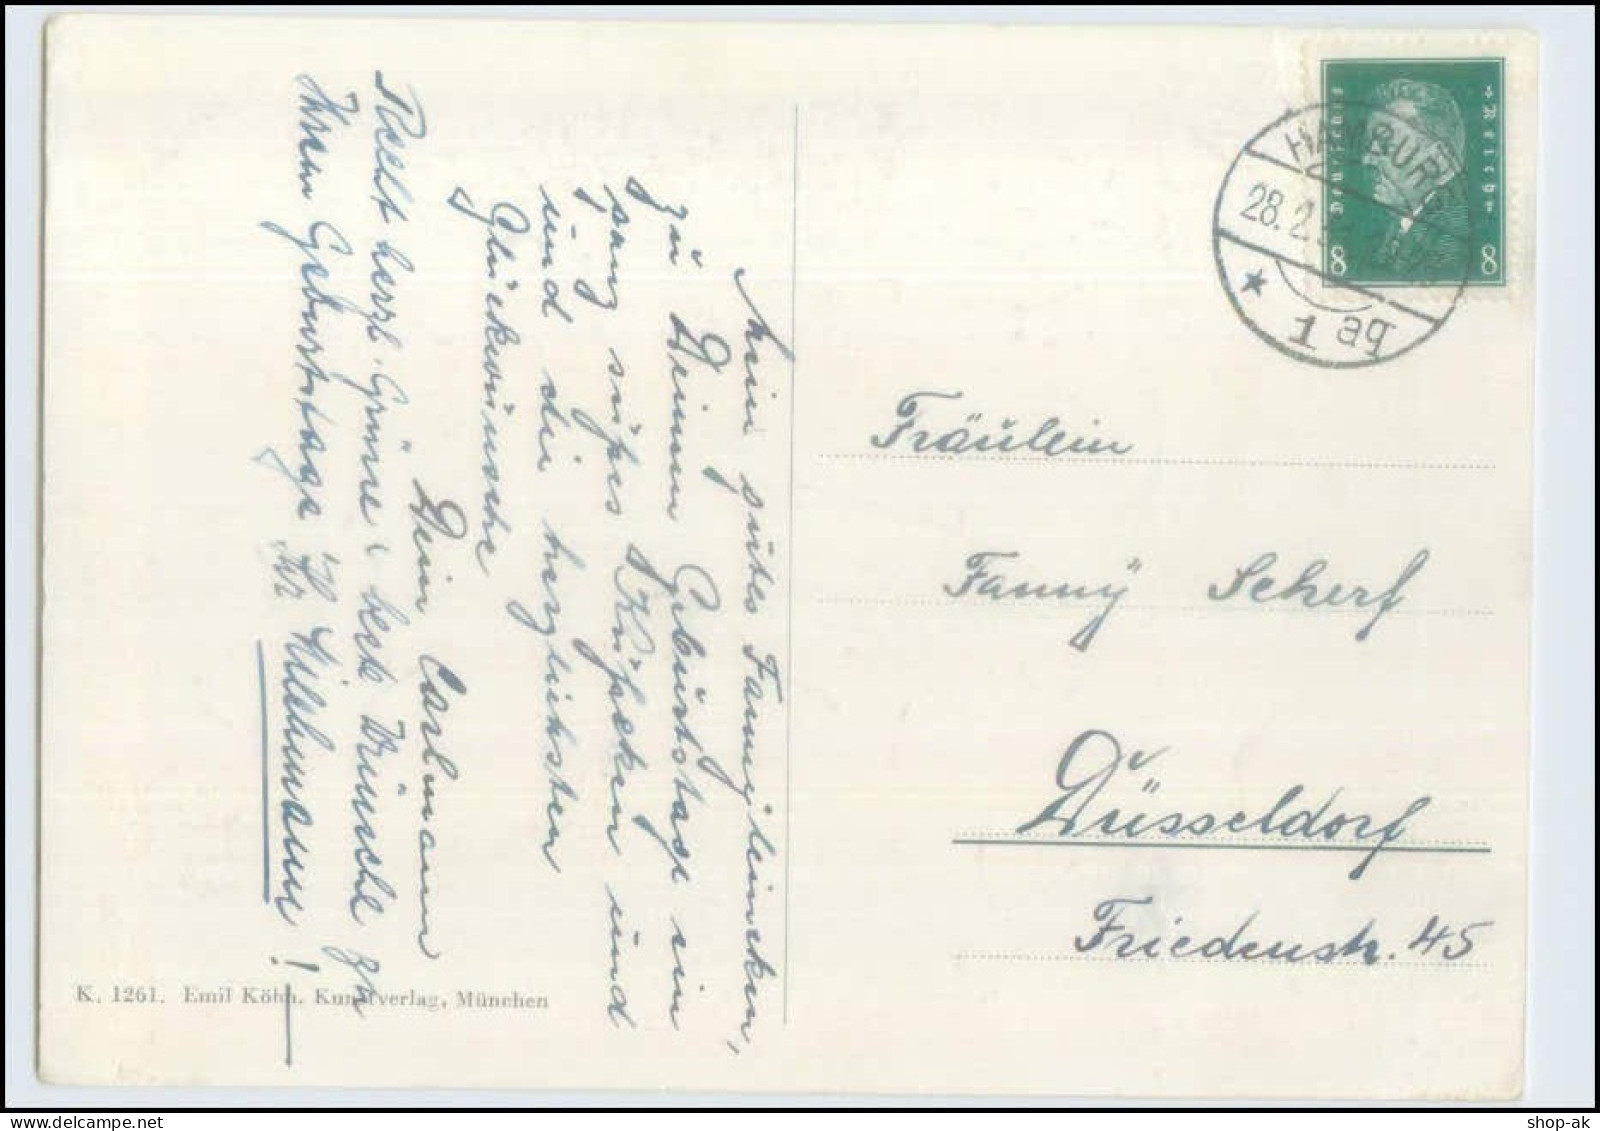 Mein gutes Fannyleinchen,
zu Deinem Geburtstage ein
ganz süßes Küßchen und
und die herzlichsten
Glückwünsche
Dein Carlmann
Recht herzl. Grüsse & beste Wünsche zu
Ihrem Geburtstage Ihr
!
K. 1261. Emil Köhn. Kunstverlag, München
Deutsches Reich
8 8
HAMBURG
28.2.
* 1 aq
Fräulein
Fanny Scherf
Düsseldorf
Friedenstr. 45
shop-ak